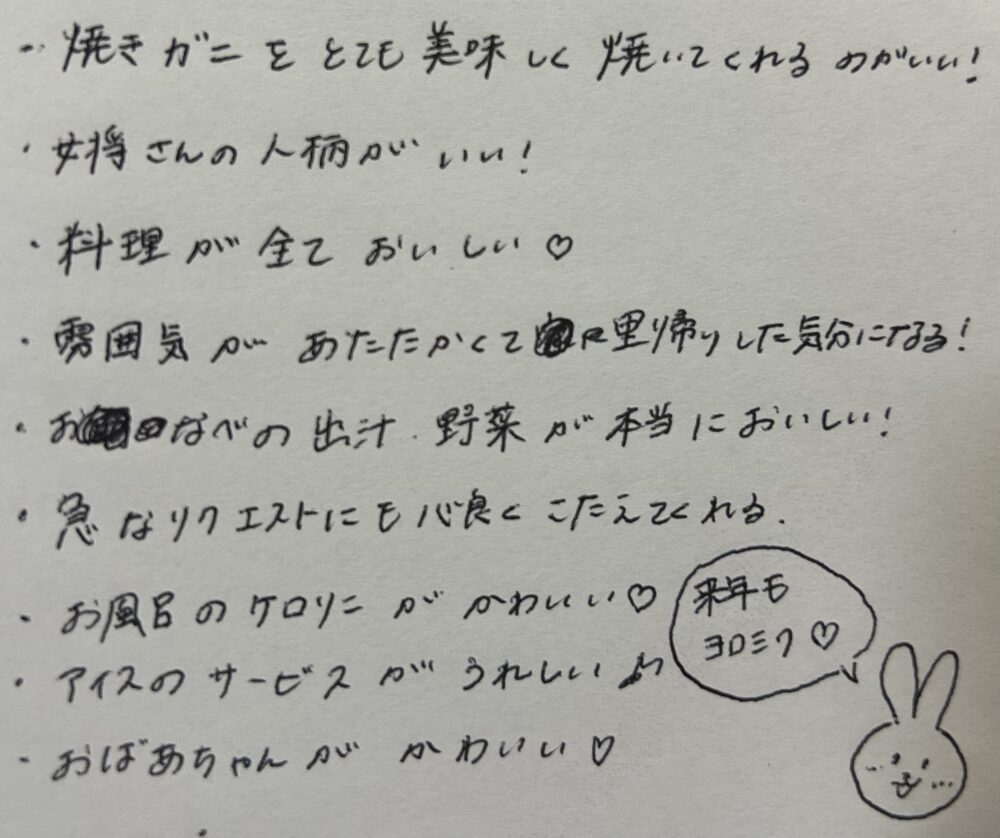 ・焼きガニをとても美味しく焼いてくれるのがいい!
・女将さんの人柄がいい!
・料理が全ておいしい♡
・雰囲気があたたかくて里帰りした気分になる!
・おなべの出汁・野菜が本当においしい!
・急なリクエストにも心良くこたえてくれる.
・お風呂のケロリンがかわいい♡
・アイスのサービスがうれしい
・おばあちゃんがかわいい♡
来年も
ヨロミク♡